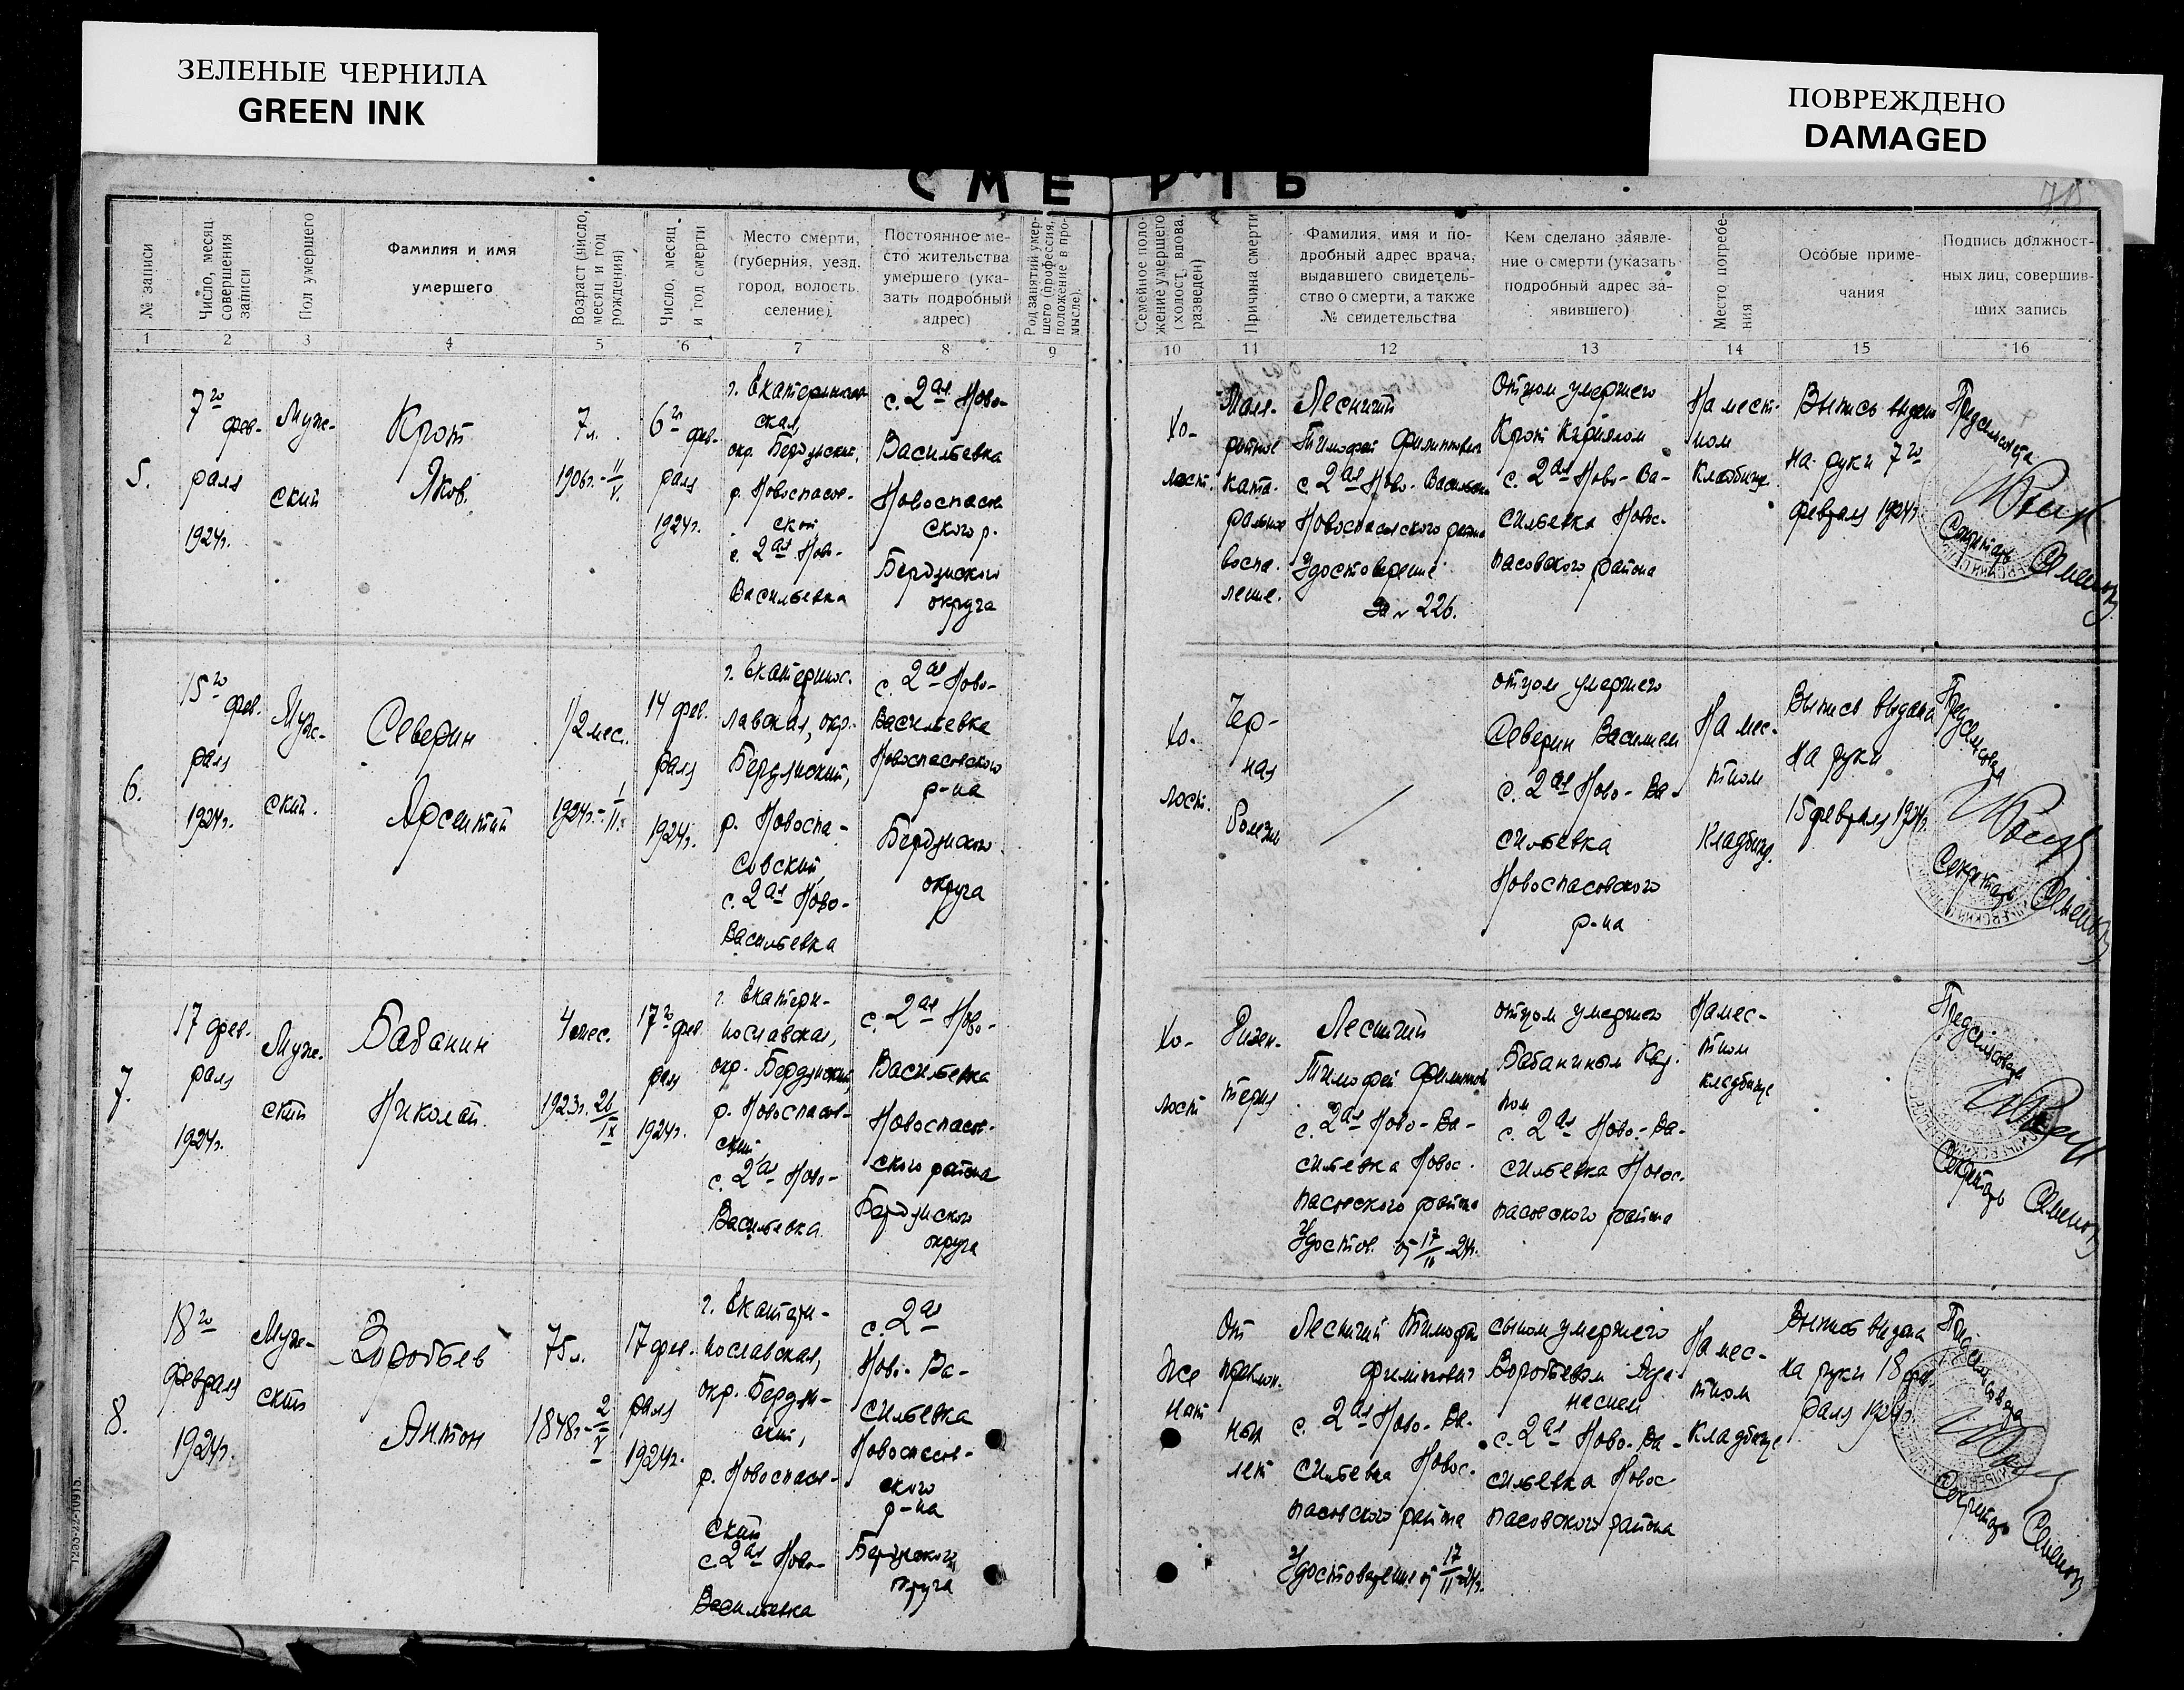 ЗЕЛЕНЫЕ ЧЕРНИЛА
GREEN INK
ПОВРЕЖДЕНО
DAMAGED
СМЕРТЬ
№ записи
Число, месяц
совершения
записи
Пол умершего
Фамилия и имя
умершего
Возраст (число,
месяц и год
рождения)
Число, месяц
и год смерти
Место смерти,
(губерния, уезд,
город, волость,
селение)
Постоянное ме-
сто жительства
умершего (ука-
зать подробный
адрес)
Род занятий умер-
шего (профессия,
положение в про-
мысле)
Семейное поло-
жение умершего
(холост, вдова,
разведен)
Причина смерти
Фамилия, имя и по-
дробный адрес врача,
выдавшего свидетель-
ство о смерти, а также
№ свидетельства
Кем сделано заявле-
ние о смерти (указать
подробный адрес за-
явившего)
Место погребе-
ния
Особые приме-
чания
Подпись должност-
ных лиц, совершив-
ших запись
1 2 3 4 5 6 7 8 9 10 11 12 13 14 15 16
5.
7го фев-
раля
1924г.
Муж-
ский
Крот
Яков.
7л.
1906г.- II/V.
6го фев-
раля
1924г.
окр. Бердянский,
р. Новоспасов-
ский
с. 2ая Ново-
Васильевка
с. 2ая Ново-
Васильевка
Новоспасов
ского р.
Бердянского
округа
Хо-
лост.
ката-
ральное
воспа-
ление.
Лесничий
Тимофей Филиппович
с. 2ая Ново-Васильевка
Новоспасовского района
Удостоверение
за № 226.
Отцом умершего
Крот Кирилом
с. 2ая Ново-Ва-
сильевка Новос-
пасовского района
На мест-
ном
Кладбище
Выпись выдана
на руки 7го
февраля 1924г.
Предсельсовета
Секретарь
6.
15го фев.
раля
1924г.
Муж-
ский.
Северин
Арсентий
1/2 мес.
1924г.- I/II.
14 фев.
раля
1924г.
г. Екатеринос-
лавская, окр.
Бердянский,
р. Новоспа-
совский,
с. 2ая Ново-
Васильевка
с. 2ая Ново-
Васильевка
Новоспасовского
р-на
Бердянского
округа
Хо-
лост.
Чер-
ная
Болезнь
отцом умершего
Северин Василием
с. 2ая Ново-Ва-
сильевка
Новоспасовского
р-на
На мес-
тном
Кладбищ.
Выпись выдана
на руки
15 февраля 1924г.
Предсельсовета
Секретарь
7.
17 фев-
раля
1924г.
Муж-
ский
Бабанин
Николай.
4 мес.
1923г. 26/IX
17го фев
раля
1924г.
г. Екатери-
нославская,
окр. Бердянский
р. Новоспасов-
ский
с. 2ая Ново-
Васильевка.
с. 2ая Ново-
Васильевка
Новоспасов-
ского района
Бердянского
округа
Хо-
лост
Дизен-
терия
Лесничий
Тимофей Филиппов
с. 2ая Ново-Ва-
сильевка Новос-
пасовского района
Удостов. от 17/II-24г.
отцом умершего
с. 2ая Ново-Ва-
сильевка Новос-
пасовского района
На мес-
тном
кладбище
Предсельсовета
Секретарь
8.
18го
февраля
1924г.
Муж-
ский
Воробьев
Антон
75 л.
1848г- 2/V
17 фев.
раля
1924г.
г. Екатери-
нославская,
окр. Бердян-
ский,
р. Новоспасов-
ский
с. 2ая Ново-
Васильевка
с. 2ая
Ново-Ва-
сильевка
Новоспасов-
ского
р-на
Бердянского
округа
Же
нат
От
преклон-
ных
лет
Лесничий Тимофей
Филиппович
с. 2ая Ново-Ва-
сильевка Новос-
пасовского района
Удостоверение от 17/II-24г.
сыном умершего
с. 2ая Ново-Ва-
сильевка Новос
пасовского района
На мес-
тном
Кладбище
Выпись выдана
на руки 18 фев-
раля 1924г.
Предсельсовета
Секретарь